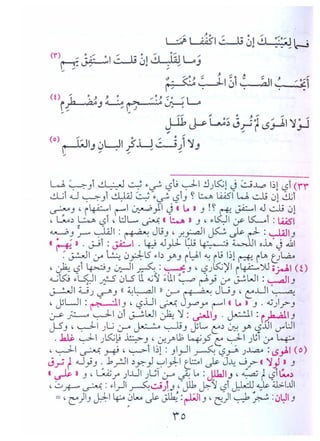 فما لعينيك إن قلت اكففا همتا
وما لقلبك إن قلت استفق يهم (٣)
أيحسب الصب أن الحب منكتم
ما بين منسجم منه ومضطرم (٤)
لولا الهوى لم ترق دمعا على طلل
ولا أرقت لذكر البان والعلم (٥)
(٣) أي إذا صدقت في إنكارك الحب فأي شيء ثبت لعينيك أوجب لهما
أنك إن قلت لهما اكففا همتا؟ وأي شيء ثبت لقلبك أوجب له أنك
إن قلت له استفق يهم؟! و «ما» في الموضعين اسم استفهام، ومعنى
اكففا: أمسكا عن البكاء، و «همتا» بمعنى سالتا، أي همتا دمعا،
والقلب: لحم على شكل الصنوبر، وقال بعضهم: القلب سر وضعه
الله في هذه اللحمة فتسميتها قلبا لحلوله فيها. استفق: أفق. «يهم»
مضارع هام يهيم إذا قام به الهيام وهو داء كالجنون ينشأ من العشق.
(٤) الهمزة للاستفهام الإنكاري، ويحسب: بكسر السين وفتحها أي يظن،
والصب: العاشق من قولهم صب الماء لأنه لما كان كثير البكاء فكأنه
يصب الدمع، وقال بعضهم من «الصبابة» وهي رقة العشق
وحرارته. و «ما» اسم موصول بمعنى الذي، والمنسجم: السائل،
والمضطرم: المشتعل. والمعنى: لا يظن العاشق أن الحب مستتر عن
الناس الذي هو بين دمع سائل وقلب مشتعل من نار الحب، وكل
منهما من آثار الحب مع كونهما ظاهرين، وحينئذ فإنكار الحب غلط.
(٥) الهوى: مصدر هوي بكسر الواو: إذا أحب، فهو بمعنى الحب،
و «لولا» حرف يدل على امتناع الجواب لوجود الشرط. وقوله لم ترق
دمعا أي لم تصبه، والطلل: ما بقي من آثار الدار مرتفعا، و «على»
الداخلة عليه للتعليل أي لأجل طلل، وأرقت بكسر الراء: بمعنى سهرت،
والبان: شجر طيب الريح، والعلم: يطلق على معان منها الجبل والرمح =
٣٥